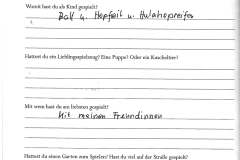 Womit hast du als Kind gespielt?
Ball u. Hopfeil u. Hulahopreifen
Hattest du ein Lieblingsspielzeug? Eine Puppe? Oder ein Kuscheltier?
Mit wem hast du am liebsten gespielt?
Mit meinen Freundinnen
Hattest du einen Garten zum Spielen? Hast du viel auf der Straße gespielt?